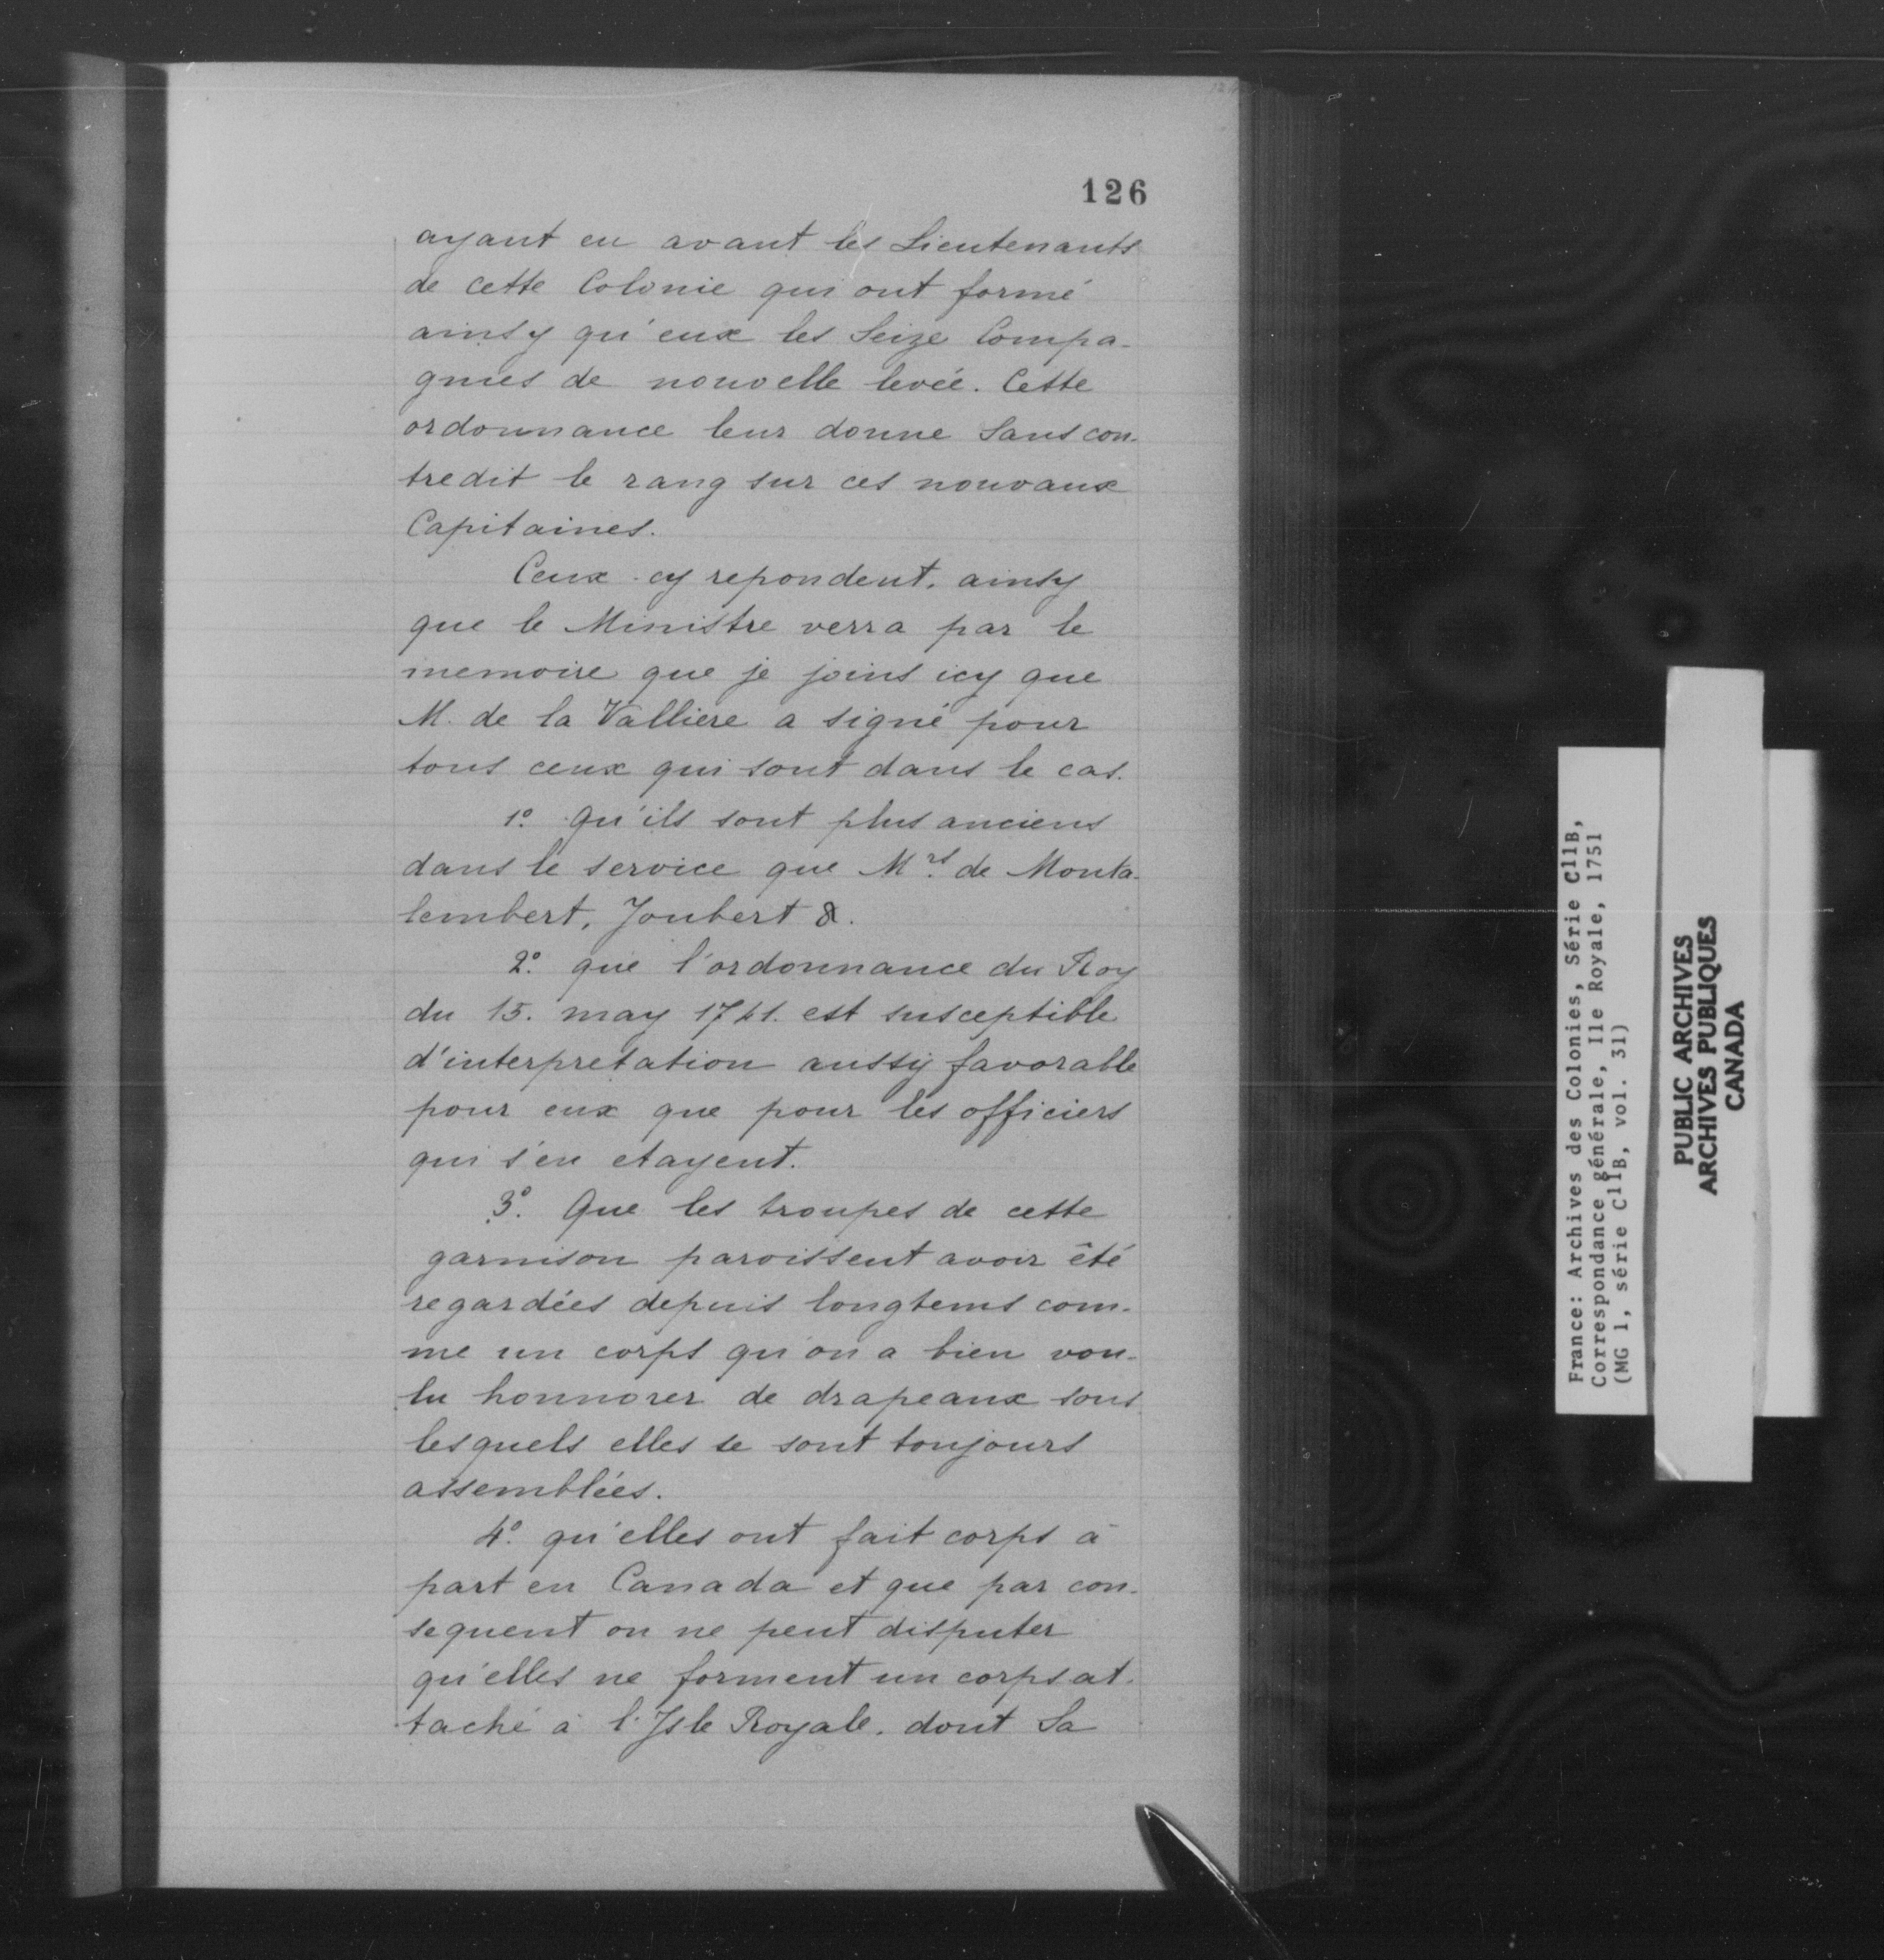 126
ayant eu avant les Lieutenants
de cette Colonie qui ont formé
ainsy qu'eux les Seize Compa-
gnies de nouvelle levée. Cette
ordonnance leur donne Sans con-
tredit le rang sur ces nouvaux
Capitaines.
Ceux-cy repondent, ainsy
que le Ministre verra par le
memoire que je joins icy que
M. de la Valliere a signé pour
tous ceux qui sont dans le cas.
1º. Qu'ils sont plus anciens
dans le service que Mrs. de Monta-
lembert, Joubert &.
2º. que l'ordonnance du Roy
du 15. may 1741. est susceptible
d'interpretation aussy favorable
pour eux que pour les officiers
qui s'en etayent.
3º. Que les troupes de cette
garnison paroissent avoir êté
regardées depuis longtems com-
me un corps qu'on a bien vou-
lu honnorer de drapeaux sous
lesquels elles se sont toujours
assemblées.
4º. qu'elles ont fait corps à
part en Canada et que par con-
sequent on ne peut disputer
qu'elles ne forment un corps at-
taché à l'Isle Royale. dont Sa
France: Archives des Colonies, Série C11B,
Correspondance générale, Ile Royale, 1751
(MG 1, série C11B, vol. 31)
PUBLIC ARCHIVES
ARCHIVES PUBLIQUES
CANADA